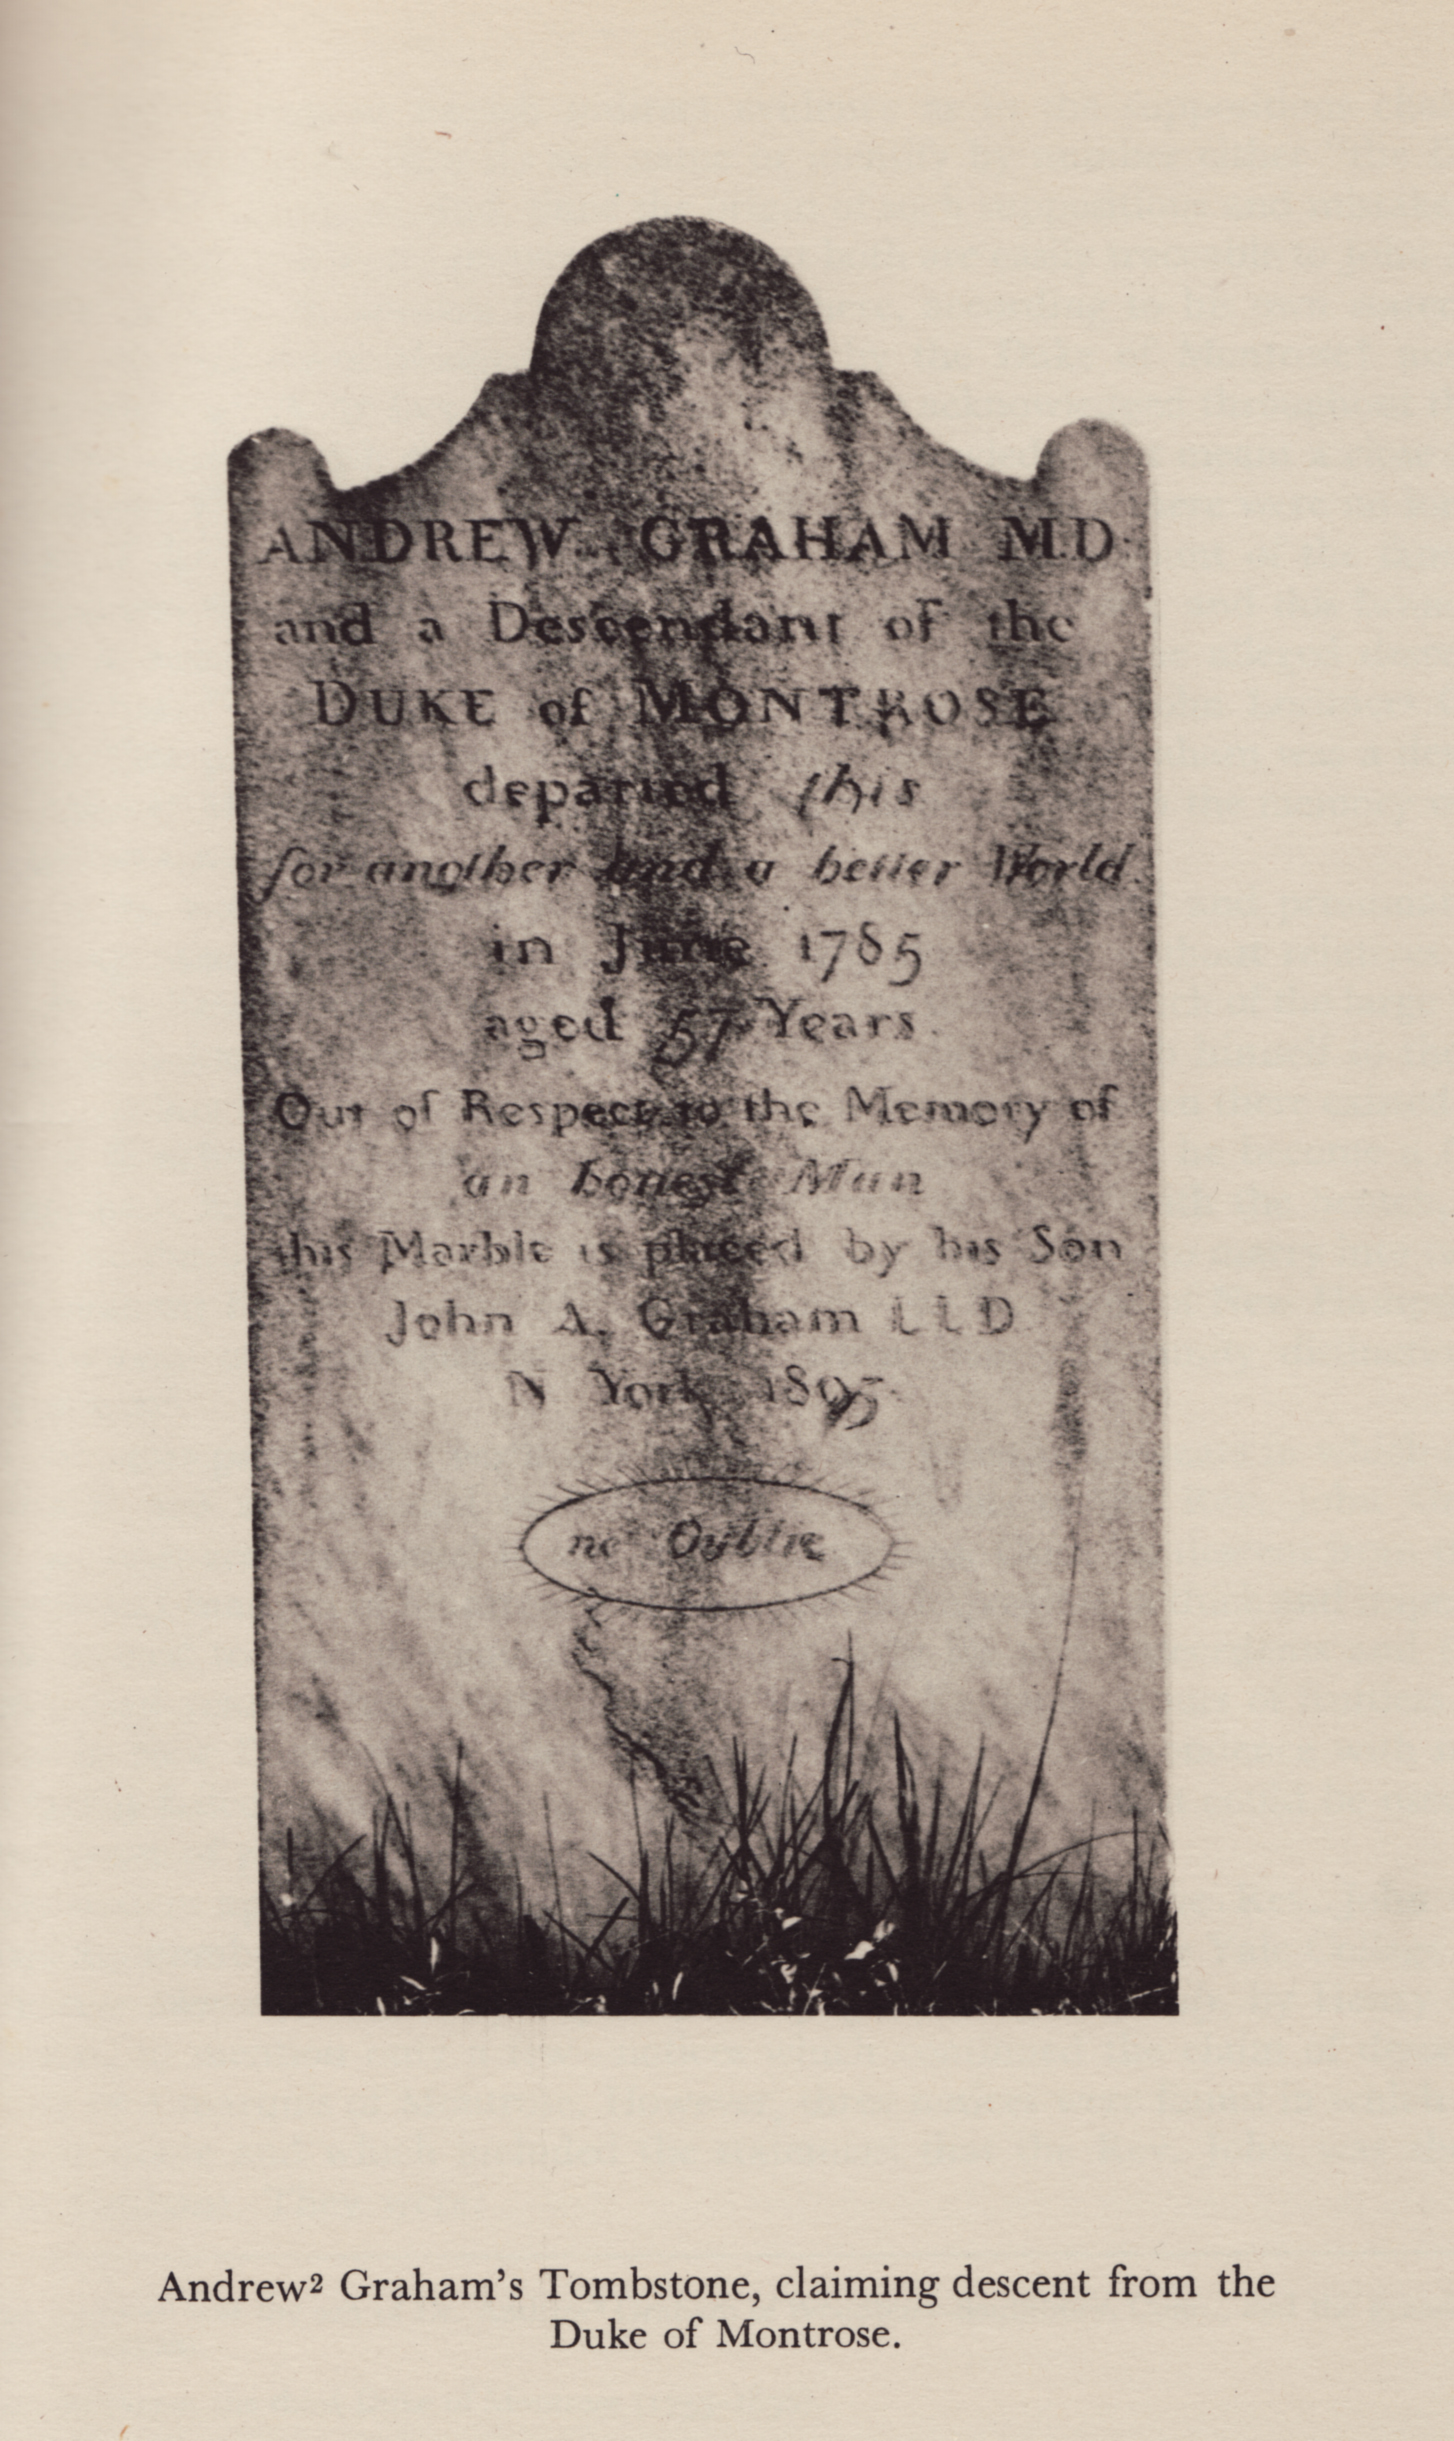 ANDREW GRAHAM M.D.
and a Descendant of the
DUKE of MONTROSE
departed this
for another and a better World.
in June 1785
aged 57 Years.
Out of Respect to the Memory of
an honest Man
this Marble is placed by his Son
John A. Graham LLD
N York 1805
ne Oublie
Andrew² Graham's Tombstone, claiming descent from the
Duke of Montrose.